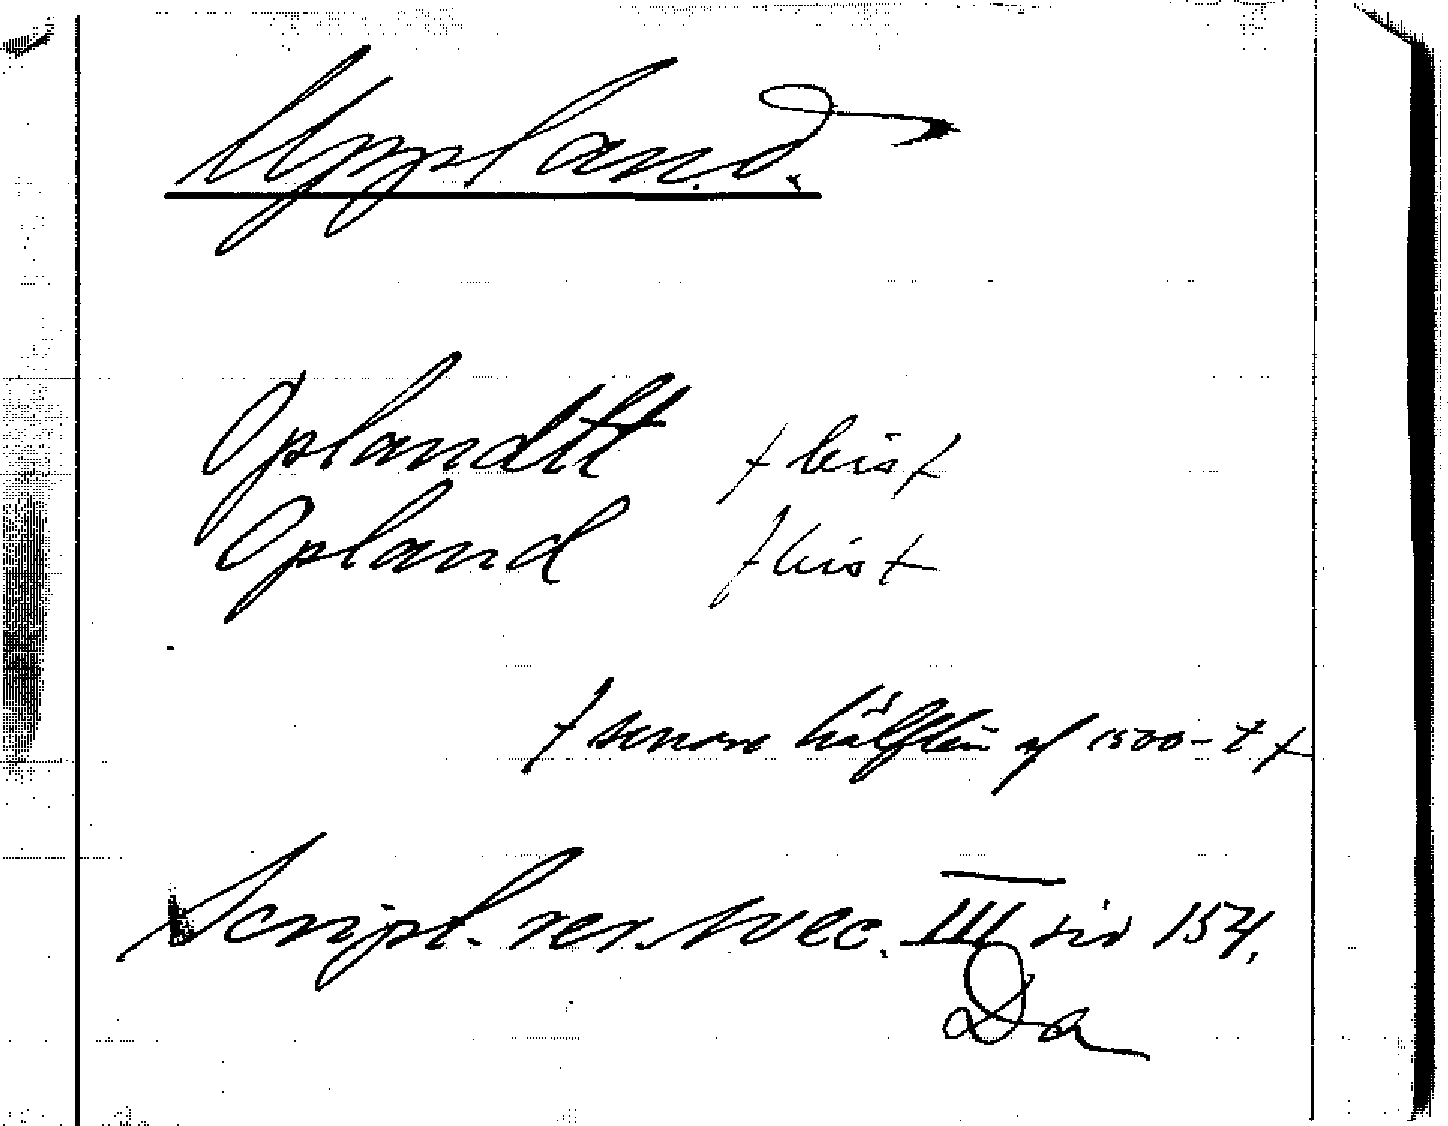 Uppland.
Oplandtt
Opland
senare hälften af 1500-t
Script. rer. svec. III sid 154.
Da